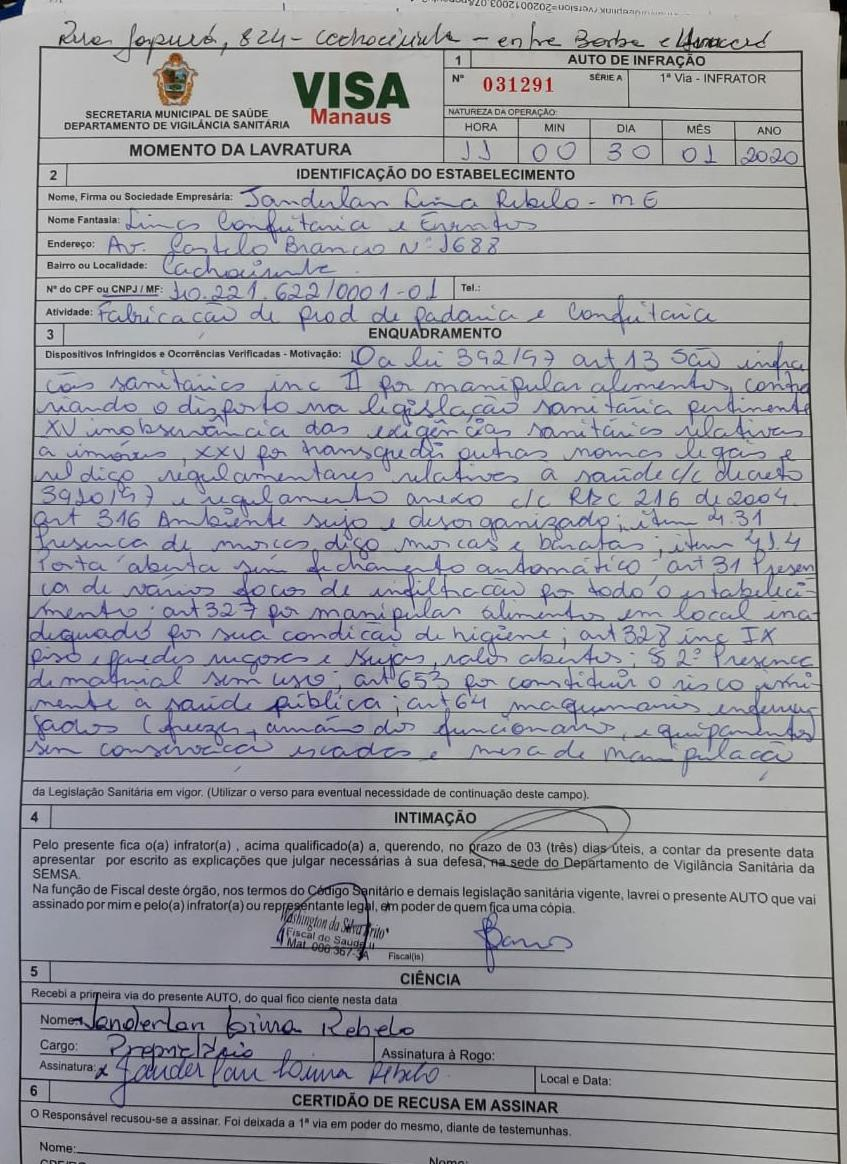 Rua Japurá, 824 - Cachoeirinha - entre Borba e
1 AUTO DE INFRAÇÃO
Nº 031291 SÉRIE A 1ª Via - INFRATOR
VISA
Manaus
SECRETARIA MUNICIPAL DE SAÚDE
DEPARTAMENTO DE VIGILÂNCIA SANITÁRIA
NATUREZA DA OPERAÇÃO:
HORA MIN DIA MÊS ANO
MOMENTO DA LAVRATURA 11 00 30 01 2020
2 IDENTIFICAÇÃO DO ESTABELECIMENTO
Nome, Firma ou Sociedade Empresária: Janderlan Lima Rebelo - ME
Nome Fantasia: Confeitaria e Eventos
Endereço: Av. Castelo Branco Nº 1688
Bairro ou Localidade: Cachoeirinha
Nº do CPF ou CNPJ / MF: 10.221.622/0001-01 Tel.:
Atividade: Fabricação de prod de padaria e confeitaria
3 ENQUADRAMENTO
Dispositivos Infringidos e Ocorrências Verificadas - Motivação: Da lei 392/97 art 13 São infra
ções sanitárias inc II por manipular alimentos, contra
riando o disposto na legislação sanitária pertinente
XV inobservância das exigências sanitárias relativas
a imóveis, XXV por transgredir outras normas legais e
digo regulamentares relativas à saúde c/c decreto
3910/97 e regulamento anexo c/c RDC 216 de 2004
art 316 Ambiente sujo e desorganizado; item 4.31
Presença de digo moscas e baratas; item 4.1.4
Porta aberta sem fechamento automático art 31 Presen
ça de vários focos de infiltração por todo o estabeleci-
mento art 327 por manipular alimentos em local ina-
dequado por sua condição de higiene; art 328 inc IX
piso e paredes rugosas e sujas, ralos abertos; § 2º Presença
de material sem uso; art 653 por constituir o risco imi-
nente à saúde pública; art 64 maquinários enferru-
jados (freezer, armário dos funcionários, equipamentos
sem conservação escadas e mesa de manipulação
da Legislação Sanitária em vigor. (Utilizar o verso para eventual necessidade de continuação deste campo).
4 INTIMAÇÃO
Pelo presente fica o(a) infrator(a) , acima qualificado(a) a, querendo, no prazo de 03 (três) dias úteis, a contar da presente data
apresentar por escrito as explicações que julgar necessárias à sua defesa, na sede do Departamento de Vigilância Sanitária da
SEMSA.
Na função de Fiscal deste órgão, nos termos do Código Sanitário e demais legislação sanitária vigente, lavrei o presente AUTO que vai
assinado por mim e pelo(a) infrator(a) ou representante legal, em poder de quem fica uma cópia.
Washington da Silva Brito
Fiscal de Saúde II
Mat. 066 367-3A
Fiscal(is)
5 CIÊNCIA
Recebi a primeira via do presente AUTO, do qual fico ciente nesta data
Nome: Janderlan Lima Rebelo
Cargo: Proprietário Assinatura à Rogo:
Assinatura: x Janderlan Lima Rebelo Local e Data:
6 CERTIDÃO DE RECUSA EM ASSINAR
O Responsável recusou-se a assinar. Foi deixada a 1ª via em poder do mesmo, diante de testemunhas.
Nome: Nome: